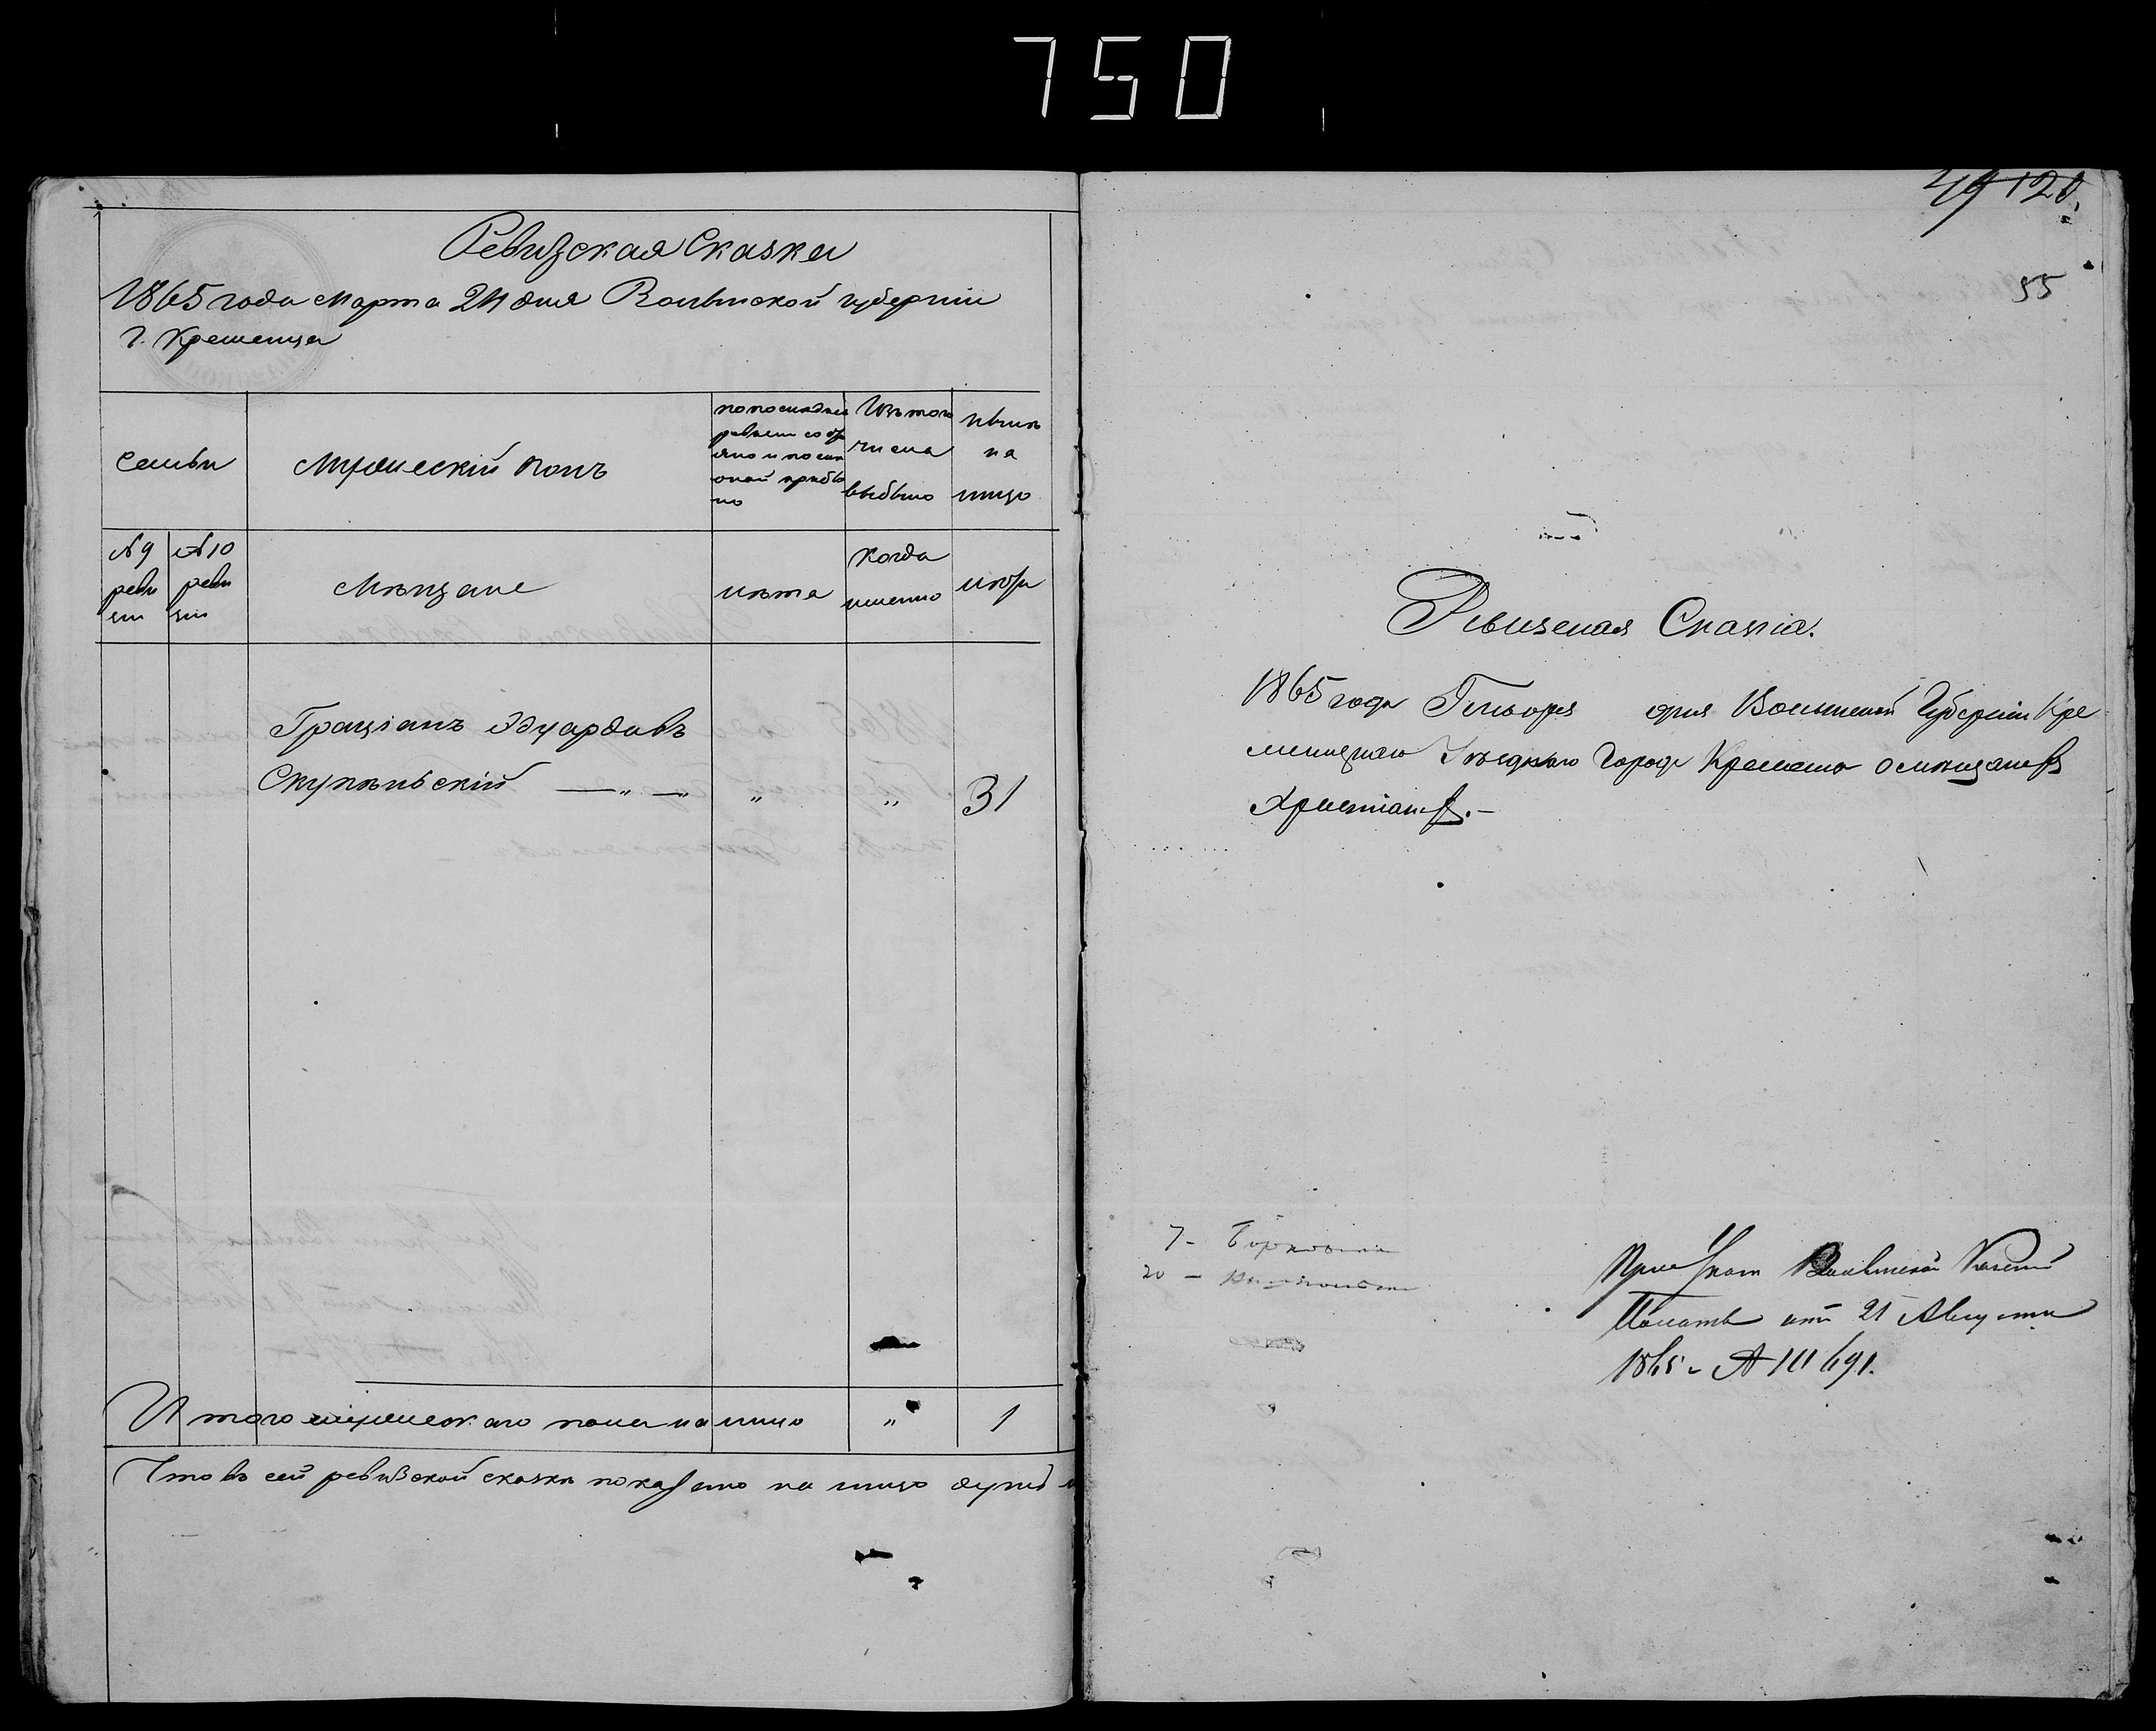 750
Ревизская Сказка
1865 года Марта 24 дня Волынской губерніи
г. Кременца
Семьи
Мужескій полъ
по последней
ревизіи со
оной прибы
ло
Изъ того
числа
выбыло
Нынѣ
на
лицо
№ 9
реви
зіи
№ 10
реви
зіи
Мѣщане
лѣта
когда
именно
лѣта
Граціанъ Эдуардовъ
Скупѣньскій — „ — „ „ 31
Итого мужескаго пола на лицо „ 1
Что въ сей ревизской сказкѣ показано на лицо душъ
49 120
55
Ревизская Сказка.
1865 года Генваря дня Волынской Губерніи Кре
менецкаго Уѣзднаго Города Кременца о мѣщанахъ
Христіанахъ.—
7 -
20 -
При Указѣ Волынской Казенной
Палаты отъ 21 Августа
1865 - № 11691.